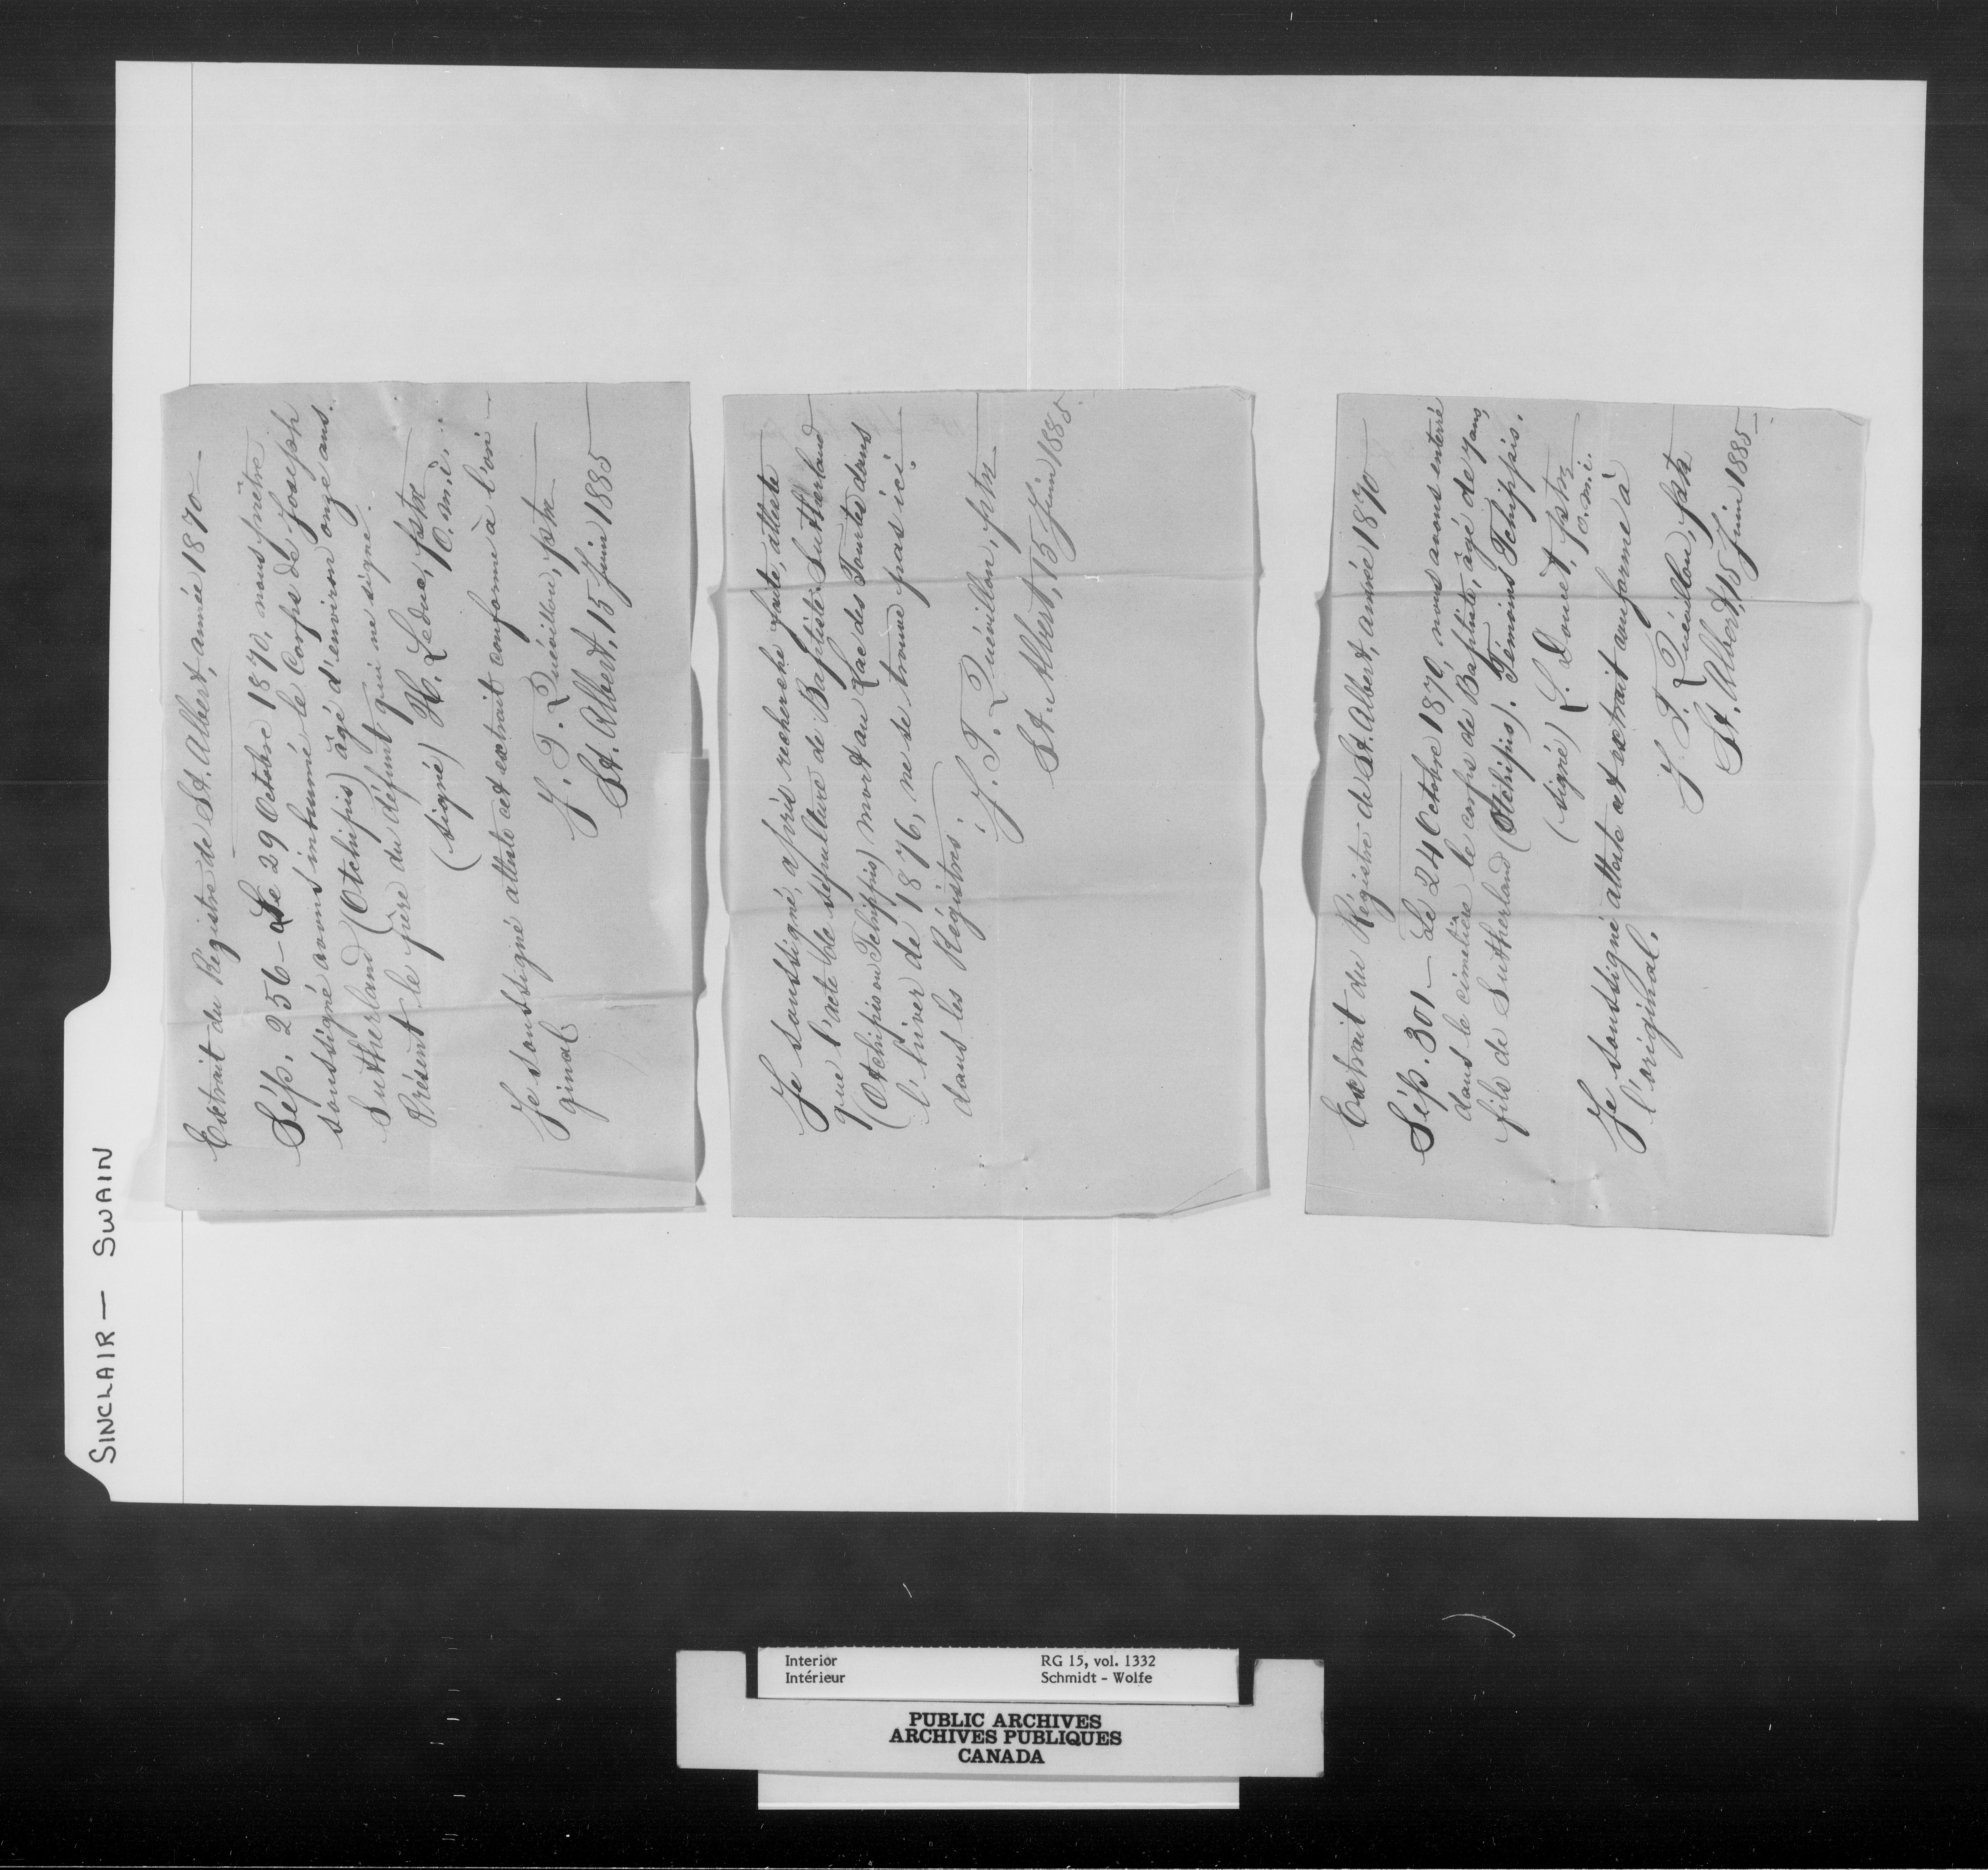 SINCLAIR — SWAIN
Extrait du Régistre de St. Albert, année 1870 —
Sép. 256 — Le 29 Octobre 1870, nous prêtre
soussigné avons inhumé le Corps de Joseph
Sutherland (Otchipis) âgé d'environ onze ans.
Présent le père du défunt qui ne signe.
(signé) H. Leduc, ptre
o.m.i.
Je soussigné atteste cet extrait conforme à l'ori-
ginal.
J. T. Quévillon, ptre
St. Albert, 15 Juin 1885
Je soussigné, après recherche faite, atteste
que l'acte de sépulture de Baptiste Sutherland
(Otchipis ou Tchippis) mort au Lac des Tourtes dans
l'hiver de 1876, ne se trouve pas ici
dans les Régistres.
J. T. Quévillon, ptre
St. Albert, 15 Juin 1885
Extrait du Régistre de St. Albert, année 1870
Sép. 301 — Le 24 Octobre 1870, nous avons enterré
dans le cimetière le corps de Baptiste, âgé de 7 ans,
fils de Sutherland (Otchipis). Témoins Tchippis.
(signé) L. Douet, ptre
o.m.i.
Je soussigné atteste cet extrait conforme à
l'original.
J. T. Quévillon, ptre
St. Albert, 15 Juin 1885 —
Interior RG 15, vol. 1332
Intérieur Schmidt - Wolfe
PUBLIC ARCHIVES
ARCHIVES PUBLIQUES
CANADA